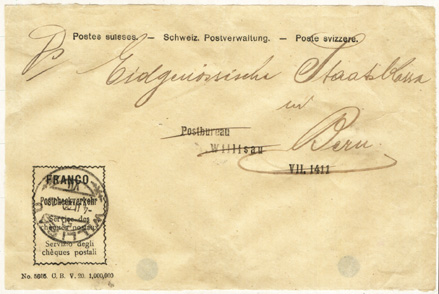 Postes suisses. — Schweiz. Postverwaltung. — Poste svizzere.
Eidgenössische Staatskassa
in
Bern
Postbureau
Willisau
VII. 1411
FRANCO
Postcheckverkehr
Service des
chèques postaux
Servizio degli
chèques postali
No. 5605. C. B. V. 20. 1,000,000